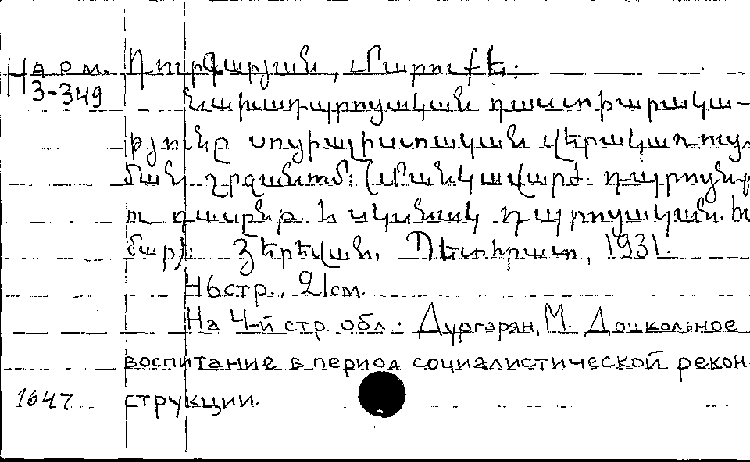 На арм. Դուրգարյան, Մարուքե.
3-349
Նախադպրոցական դաստիարակա-
թյունը սոցիալիստական վերակառուց
ման շրջանում: (Մանկավարժ. դպրոցներ
դասընթ. և ականակ դպրոցական. հ
մար): Յերեվան, Պետհրատ, 1931.
46 стр., 21 см.
На 4-й стр. обл.: Дургарян, М. Дошкольное
воспитание в период социалистической рекон-
1647 струкции.